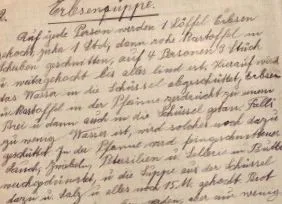 2. Erbsensuppe.
Auf jede Person werden 1 Löffel Erbsen
gekocht, zirka 1 Std, dann rohe Kartoffeln in
Scheiben geschnitten, auf 4 Personen 3 Stück
u mitgekocht bis alles lind ist. Hierauf wird
das Wasser in die Schüssel abgeschüttet, Erbsen
u Kartoffeln in der Pfanne zerdrückt zu einem
Brei u dann auch in die Schüssel getan. Falls
zu wenig Wasser ist, wird solches noch dazu
geschüttet. In der Pfanne wird feingeschnittener
Lauch, Zwiebeln, Petersilien u Sellerie in Butter
durchgedünstet, u die Suppe aus der Schüssel
dazu u Salz u alles noch 15 M. gekocht. Brot
werden, aber nur wenig